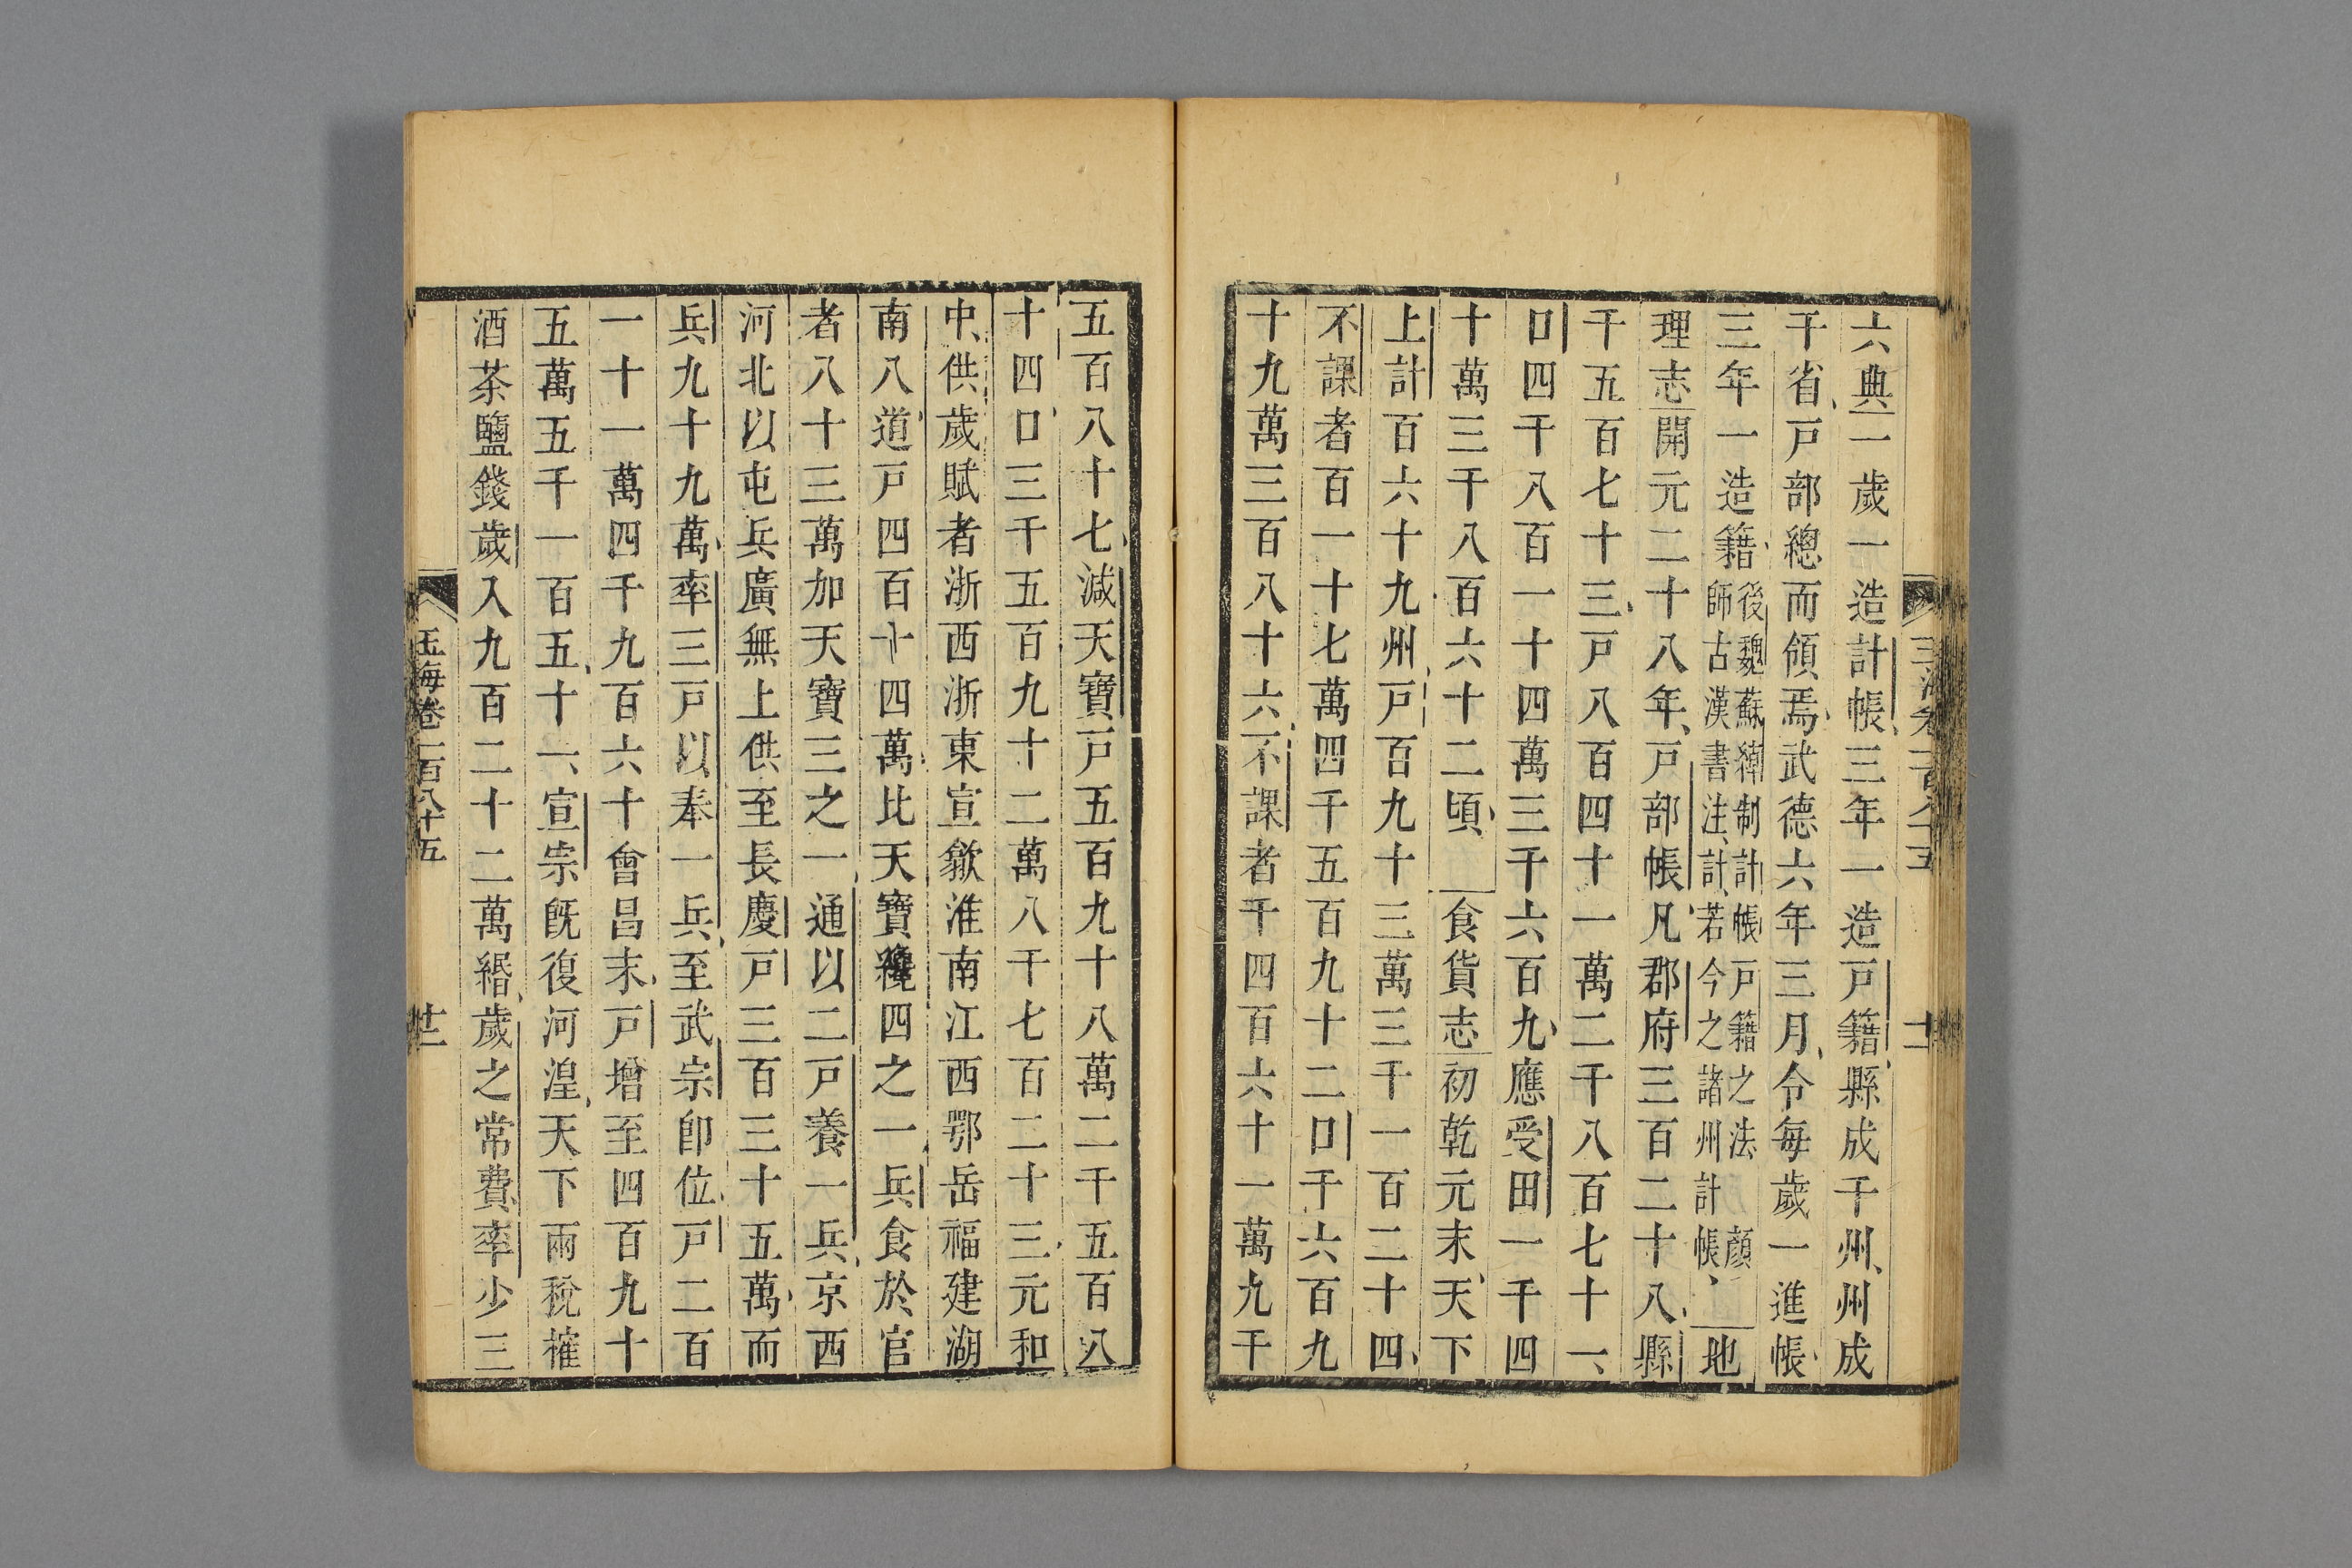 六典一歲一造計帳三年一造戸籍縣成于州州成
于省戸部總而領焉武德六年三月令每歲一進帳
三年一造籍後魏蘇綽制計帳戸籍之法顔師古漢書注計若今之諸州計帳地
理志開元二十八年戸部帳凡郡府三百二十八縣
千五百七十三戸八百四十一萬二千八百七十一
口四千八百一十四萬三千六百九應受田一千四
十萬三千八百六十二頃食貨志初乾元末天下
上計百六十九州戸百九十三萬三千一百二十四
不課者百一十七萬四千五百九十二口千六百九
十九萬三百八十六不課者千四百六十一萬九千
五百八十七減天寶戸五百九十八萬二千五百八
十四口三千五百九十二萬八千七百二十三元和
中供歲賦者浙西浙東宣歙淮南江西鄂岳福建湖
南八道戸四百十四萬比天寶纔四之一兵食於官
者八十三萬加天寶三之一通以二戸養一兵京西
河北以屯兵廣無上供至長慶戸三百三十五萬而
兵九十九萬率三戸以奉一兵至武宗即位戸二百
一十一萬四千九百六十會昌末戸增至四百九十
五萬五千一百五十一宣宗既復河湟天下兩稅榷
酒茶鹽錢歲入九百二十二萬緡歲之常費率少三
玉海卷一百八十五